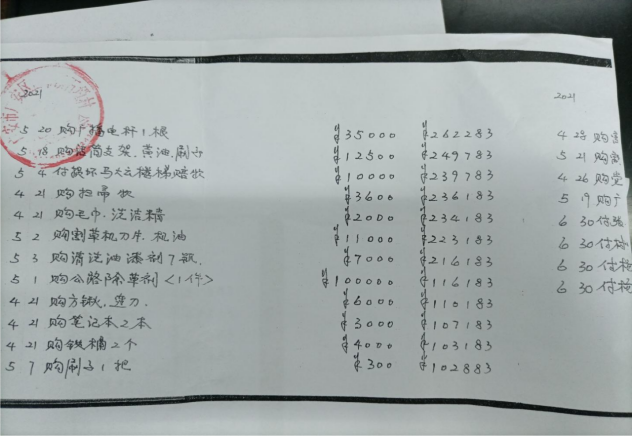 2021
5 20 购广播电杆1根 ¥35000 ¥262283
5 18 购信筒支架.黄油.刷子 ¥12500 ¥249783
5 4 付损坏马太立楼梯赔收 ¥10000 ¥239783
4 21 购扫帚收 ¥3600 ¥236183
4 21 购毛巾.洗洁精 ¥2000 ¥234183
5 2 购割草机刀片.机油 ¥11000 ¥223183
5 3 购清洗油漆剂7瓶 ¥7000 ¥216183
5 1 购公路除草剂<1件> ¥100000 ¥116183
4 21 购方锹.弯刀. ¥6000 ¥110183
4 21 购笔记本2本 ¥3000 ¥107183
4 21 购铁桶2个 ¥4000 ¥103183
5 7 购刷子1把 ¥300 ¥102883
2021
4 28 购
5 21 购
4 26 购
5 19 购广
6 30 付
6 30 付
6 30 付
6 30 付